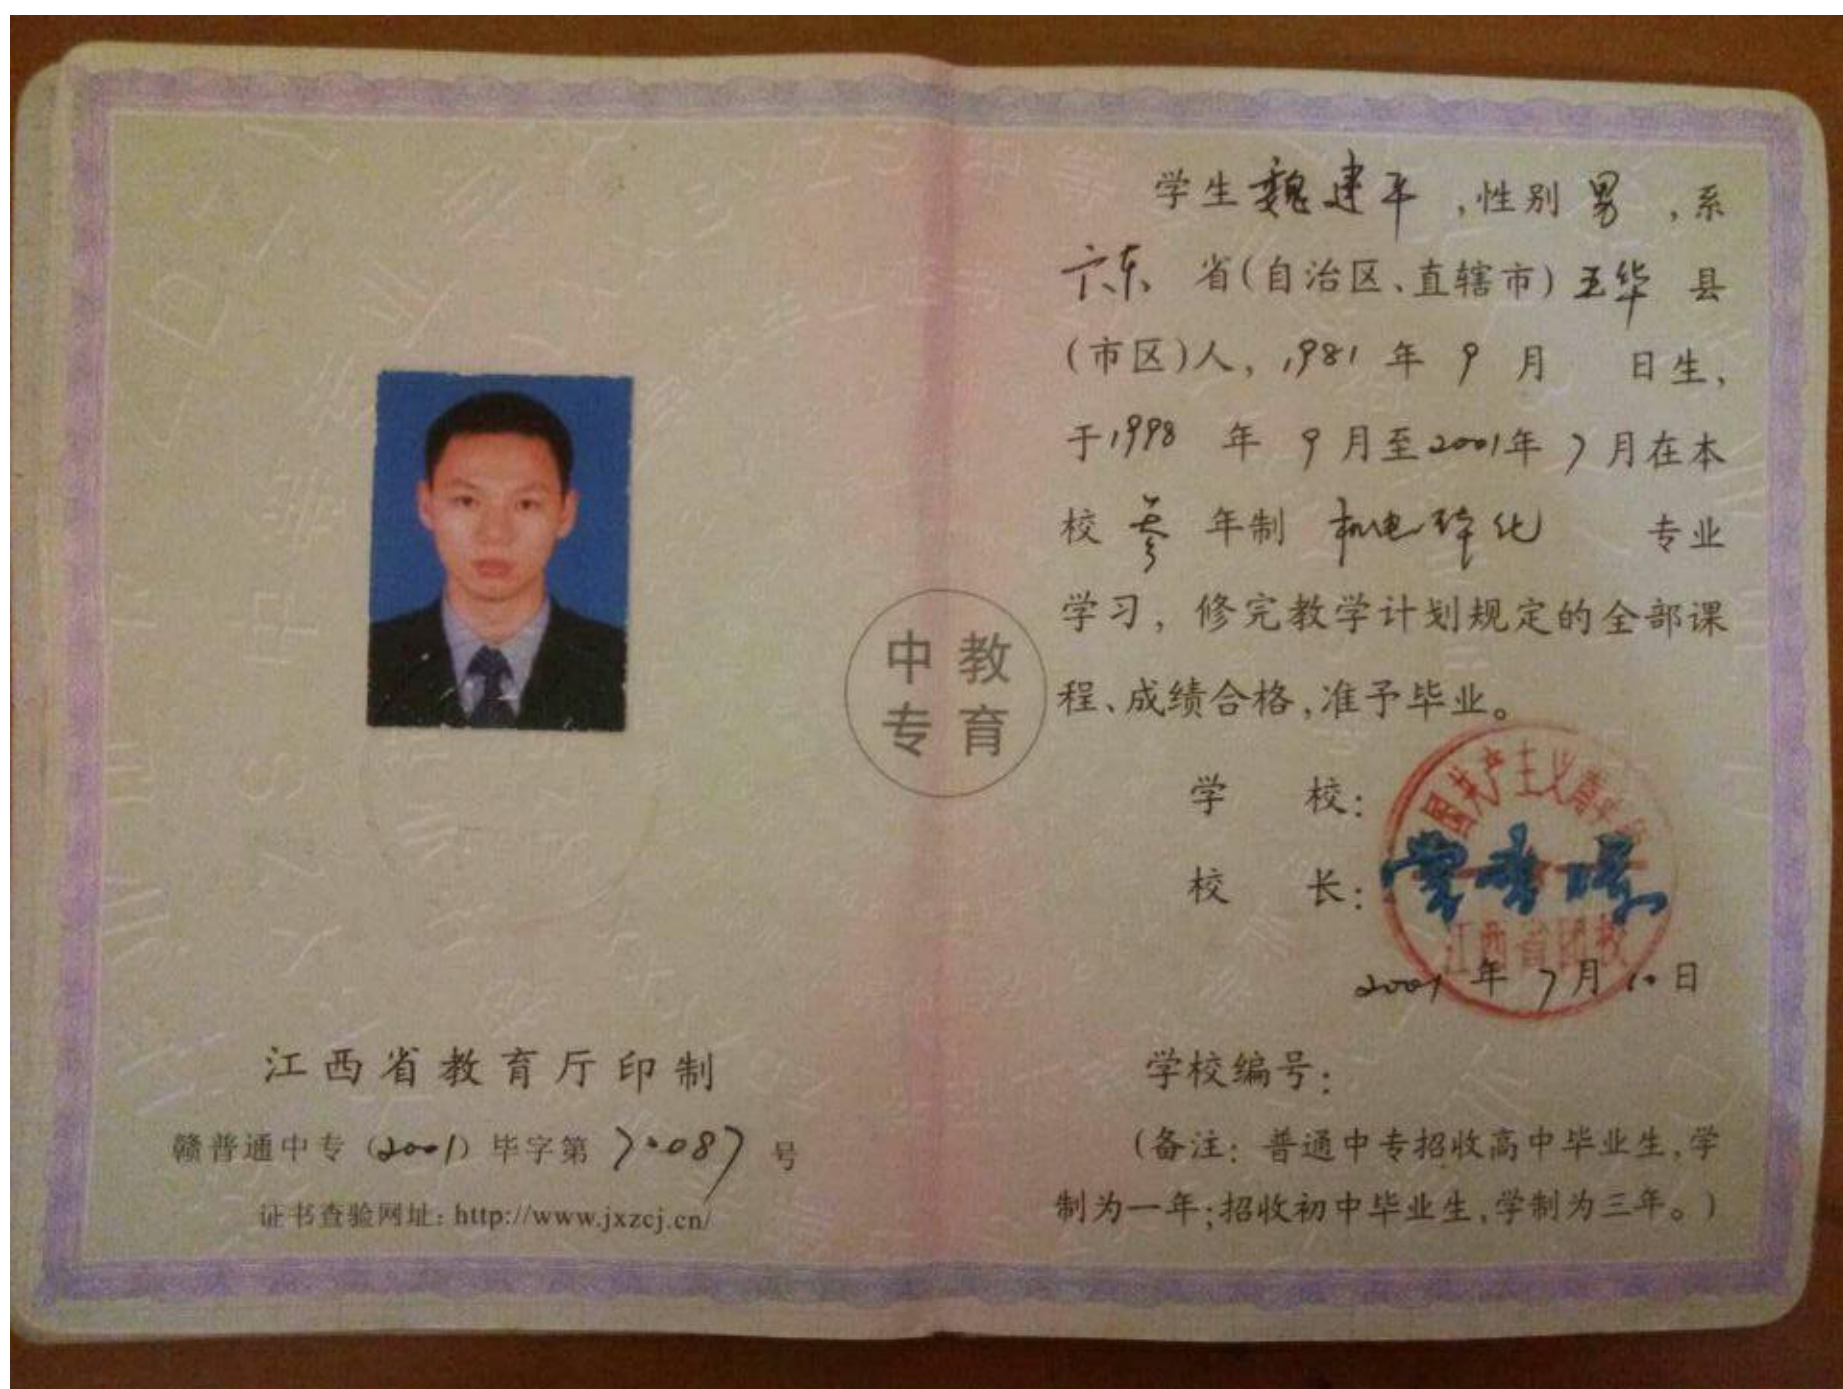 江西省教育厅印制
赣普通中专(2001)毕字第 70087 号
证书查验网址: http://www.jxzcj.cn/
中教
专育
学生魏建平,性别 男,系
广东 省(自治区、直辖市)五华 县
(市区)人, 1981 年 9 月 日生,
于1998 年 9月至2001年 7月在本
校 叁 年制 机电 化 专业
学习, 修完教学计划规定的全部课
程、成绩合格,准予毕业。
学 校:
国共产主义青年
江西省团校
校 长:
2001年 7月10日
学校编号:
(备注: 普通中专招收高中毕业生,学
制为一年;招收初中毕业生,学制为三年。)